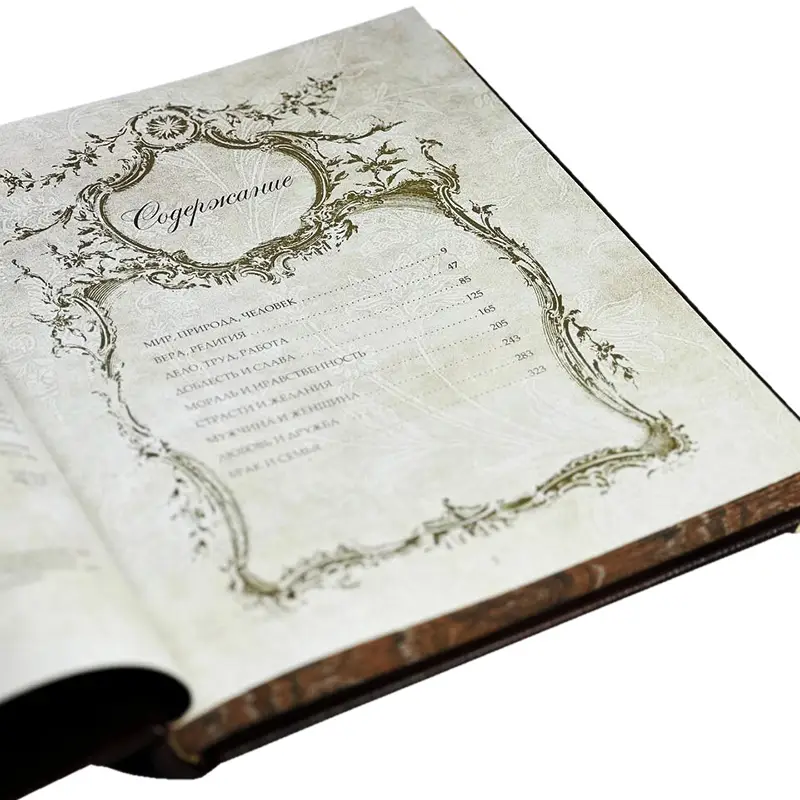 Содержание
МИР, ПРИРОДА, ЧЕЛОВЕК 9
ВЕРА, РЕЛИГИЯ 47
ДЕЛО, ТРУД, РАБОТА 85
ДОБЛЕСТЬ И СЛАВА 125
МОРАЛЬ И НРАВСТВЕННОСТЬ 165
СТРАСТИ И ЖЕЛАНИЯ 205
МУЖЧИНА И ЖЕНЩИНА 243
ЛЮБОВЬ И ДРУЖБА 283
БРАК И СЕМЬЯ 323